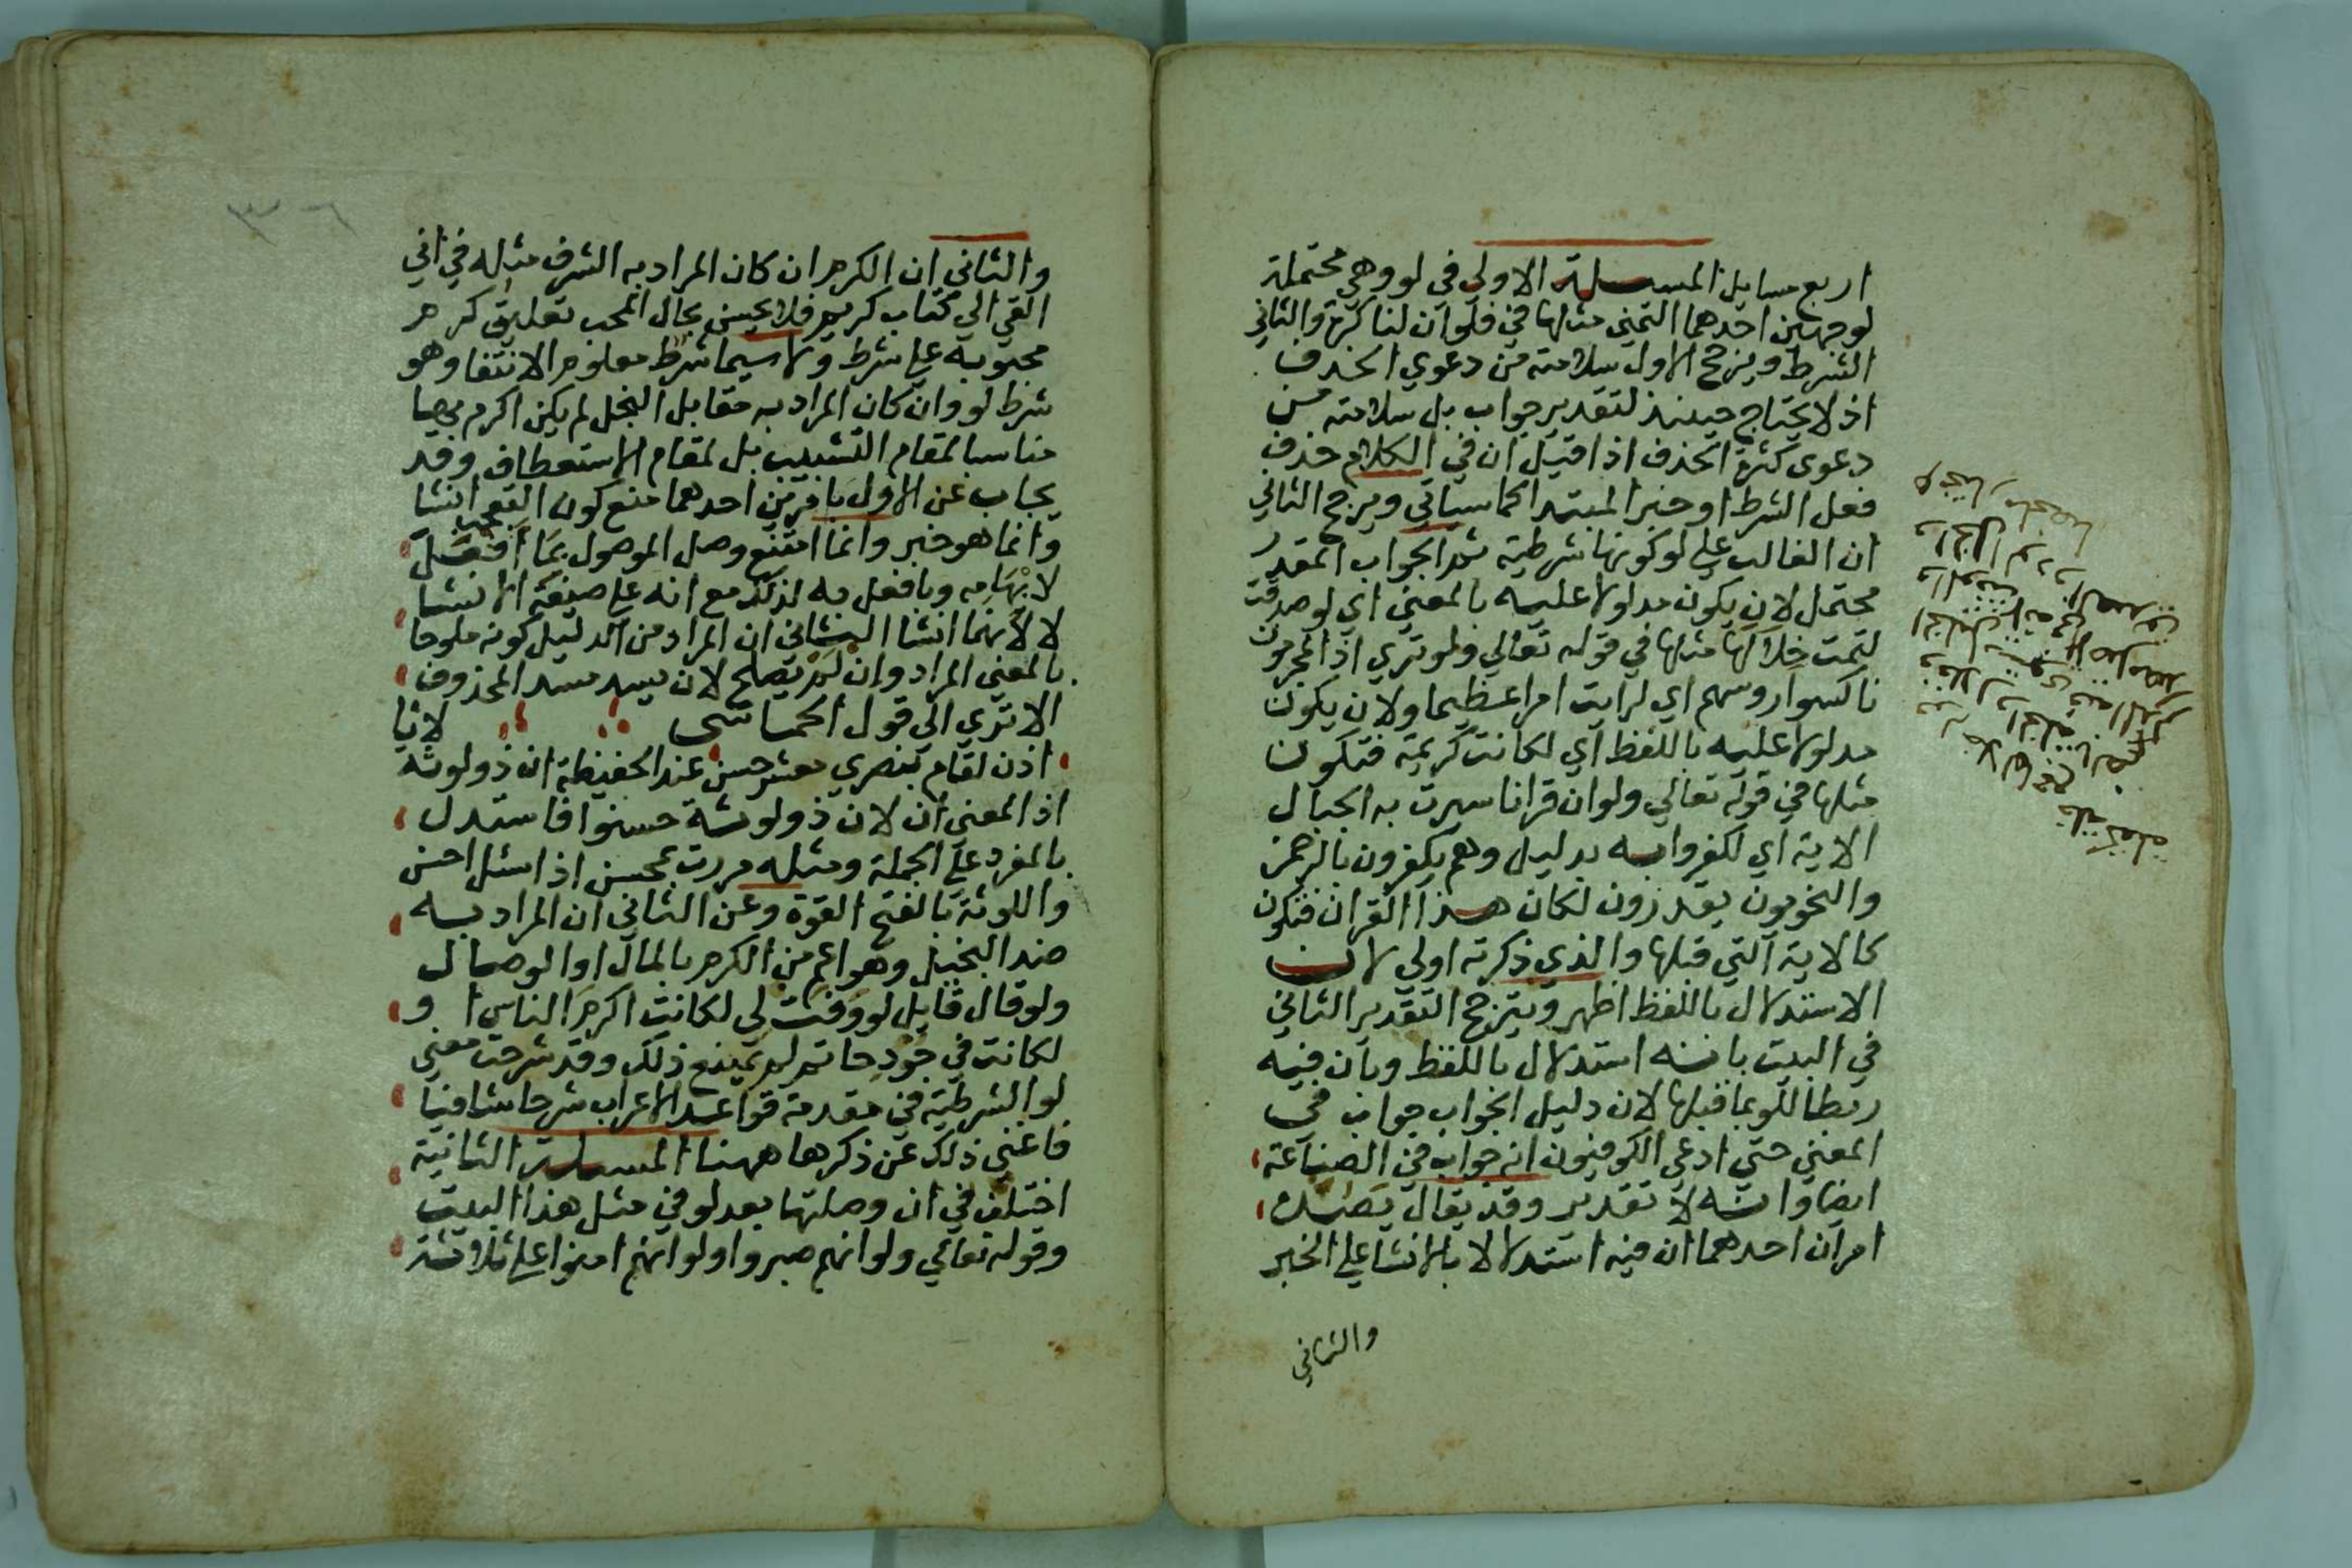 اربع مسايل المسلة الاولي في لو وهي محتملة
لوجهين احدهما التمني مثلها في فلو ان لنا كرة والثاني
الشرط ويرجح الاول سلامته من دعوي الحذف
اذ لا يحتاج حينئذ لتقدير جواب بل سلامته من
دعوى كثرة الحذف اذا قيل ان في الكلام حذف
فعل الشرط او خبر المبتدا كما سياتي ويرجح الثاني
ان الغالب علي لو كونها شرطية ثم الجواب المقدر
محتمل لان يكون مدلولا عليه بالمعني اي لو صدقت
لتمت خلالها مثلها في قوله تعالي ولو تري اذ المجرمون
ناكسوا روسهم اي لرايت امرا عظيما ولان يكون
مدلولا عليه باللفظ اي لكانت كريمة فتكون
مثلها في قوله تعالي ولو ان قرانا سيرت به الجبال
الاية اي لكفروا به بدليل وهم يكفرون بالرحمن
والنحويون يقدرون لكان هذا القران فتكون
كالاية التي قبلها والذي ذكرته اولي لان
الاستدلال باللفظ اظهر ويترجح التقدير الثاني
في البيت بانه استدلال باللفظ وبان فيه
ربطا للو بما قبلها لان دليل الجواب جواب في
المعني حتي ادعي الكوفيون انه جواب في الصناعة
ايضا وانه لا تقدير وقد يقال يضعف
امران احدهما ان فيه استدلالا بالانشا علي الخبر
والثاني
والثاني ان الكرم ان كان المراد به الشرف مثله في اني
القي الي كتاب كريم فلا يحسن بحال المحب تعليق كرم
محبوبه علي شرط ولا سيما شرط معلوم الانتفا وهو
شرط لو وان كان المراد به مقابل البخل لم يكن اكرم بها
مناسبا لمقام التشبيب بل لمقام الاستعطاف وقد
يجاب عن الاول بامرين احدهما منع كون التعجب انشا
وانما هو خبر وانما امتنع وصل الموصول بما افعل
لابهامه وبافعل به لذلك مع انه علي صيغة الانشا
لا لانهما انشا الثاني ان المراد من الدليل كونه ملوحا
بالمعني المراد وان لم يصلح لان يسد مسد المحذوف
الا تري الي قول الحماسي لانا
اذن لقام بنصري معشر خشن عند الحفيظة ان ذو لوثة
اذ المعني ان لان ذو لوثة خشنوا فاستدل
بالمفرد علي الجملة ومثله مررت بمحسن اذا سئل احسن
واللوثة بالفتح القوة وعن الثاني ان المراد به
ضد البخيل وهو اعم من الكرم بالمال او الوصال
ولو قال قايل لو وفت لي لكانت اكرم الناس او
لكانت في جود حاتم لم يمنع ذلك وقد شرحت معني
لو الشرطية في مقدمة قواعد الاعراب شرحا شافيا
فاغني ذلك عن ذكرها ههنا المسلة الثانية
اختلف في ان وصلتها بعد لو في مثل هذا البيت
وقوله تعالي ولو انهم صبروا ولو انهم امنوا علي ثلاثة